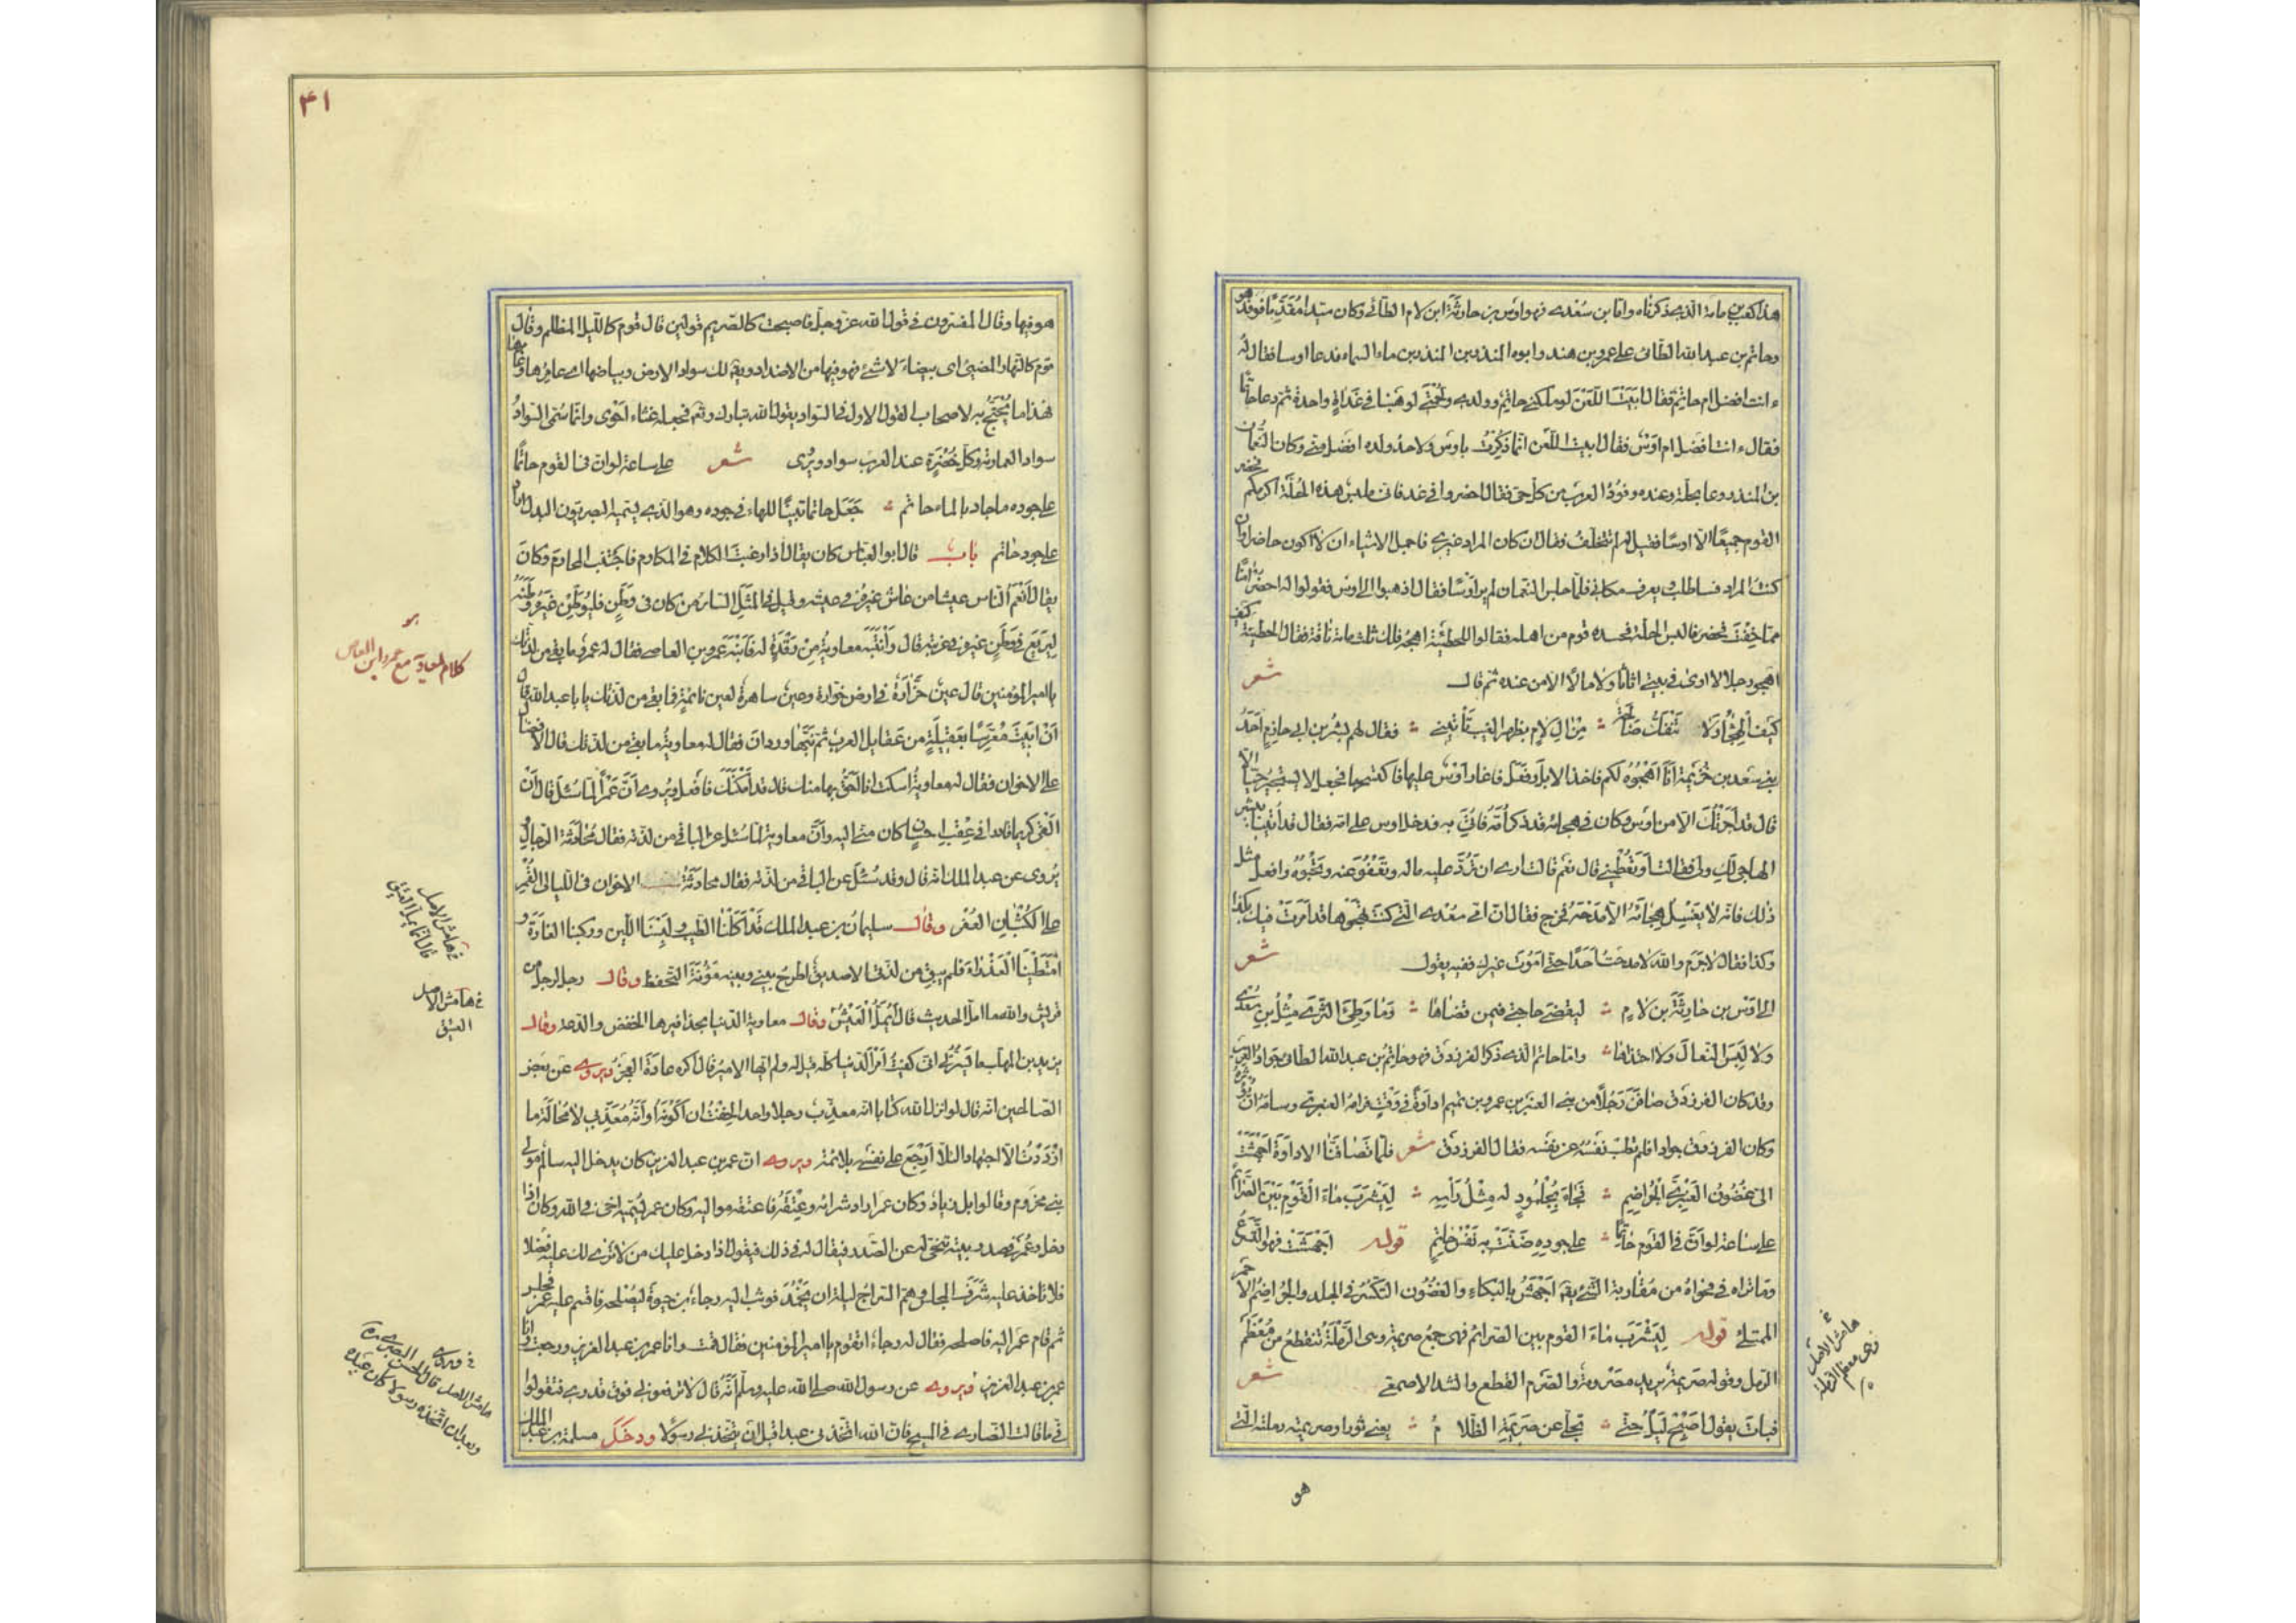 هذا كعب بن مامة الذي ذكرناه واما ابن سُعْدى فهو اوس بن حارثة ابن لام الطائي وكان سيدا مُقَدَّمًا فوفد هو
وحاتم بن عبد الله الطائى على عمرو بن هند وابوه المنذر بن المنذر بن ماء السماء فدعا اوسا فقال لهُ
ءانت افضل ام حاتم فقال ابَيْتَ اللَّعْنَ لو ملكنى حاتم وولدى ولحمتى لوهَبَنا في غَداةٍ واحدة ثم دعا حاتمًا
فقال ءانت افضل ام اَوْسٌ فقال ابيتَ اللَّعْن انما ذُكِرْتُ باوس ولاحدُ ولده افضل منّي وكان النُّعمان
بن المنذر دعا بحلّة وعنده وفودُ العرب من كلّ حىّ فقال احضروا في غد فانى ملبس هذه الحُلّة اكرمكم فحضر
القوم جميعًا الّا اوسًا فقيل له لم تتخلّفُ فقال ان كان المراد غيرى فاجمل الاشياء ان لا اكون حاضرا وان
كنتُ المراد فساطلب ويعرف مكانى فلمّا جلس النعمان لم ير اَوْسًا فقال اذهبوا الى اوس فقولوا له احضُر آمنًا
ممّا خِفْتَ فحضر فالبس الحلّة فحسده قوم من اهله فقالوا للحطيئة اهجُهُ ولك ثلثمائة ناقة فقال الحطيئة كيف
اهجو رجلا لا ارى في بيتى اثاثا ولا مالا الّا من عنده ثم قال شعر
كَيْفَ الهِجَاُ وَلا تَنْفَكُّ صَالحَةٌ مِنْ الِ لَاْمٍ بظهر الغيب تَأْتينى فقال لهم بِشْر بن ابى حازم اَحَدُ
بنى سعد بن خُزيمة اَنَا اَهْجُوُه لكم فاخذ الابل وفَعَل فاغار اوْسٌ عليها فاكتسحها فجعل لا يستجيرُ حيًّا الّا
قال قد اَجَرْتُكَ الّا من اَوْسٍ وكان في هجائه قد ذكر اُمَّهُ فاُتِىَ به فدخل اوس على امّه فقال قد اُتينا ببشر
الهاجى لكِ ولى فقالت اَوَتُطيعُنى قال نعم قالت ارى ان تَرُدَّ عليه ماله وتَعْفُوَ عنه وتَحْبُوَهُ وافعل مثل
ذلك فانّه لا يَغْسِلُ هِجاءَهُ الّا مَدْحُهُ فخرج فقال انّ امّى سُعْدى الّتى كنتَ تَهْجُوها قد اَمَرَتْ فيك بكذا
وكذا فقال لا جَرَمَ والله لا مدحتُ اَحَدًا حتّى اَمُوتَ غيرك ففيه يقول شعر
الى اوْسِ بن حارثةَ بن لاْمٍ ليقضىَ حاجتى فيمن قضاها وَمَا وَطِىَ الثَّرى مِثْلُ بنِ سُعْدى
ولا لَبِسَ النعالَ ولا احتذاها وامّا حاتم الذى ذكر الفرزدق فهو حاتم بن عبد الله الطائى جوادُ العرب
وقد كان الفرزدق صافَنَ رَجُلًا من بنى العنبر بن عمرو بن تميم اداوَةً في وَقْتٍ فرامهُ العنبرىّ وسامهُ انْ يُؤثرهُ
وكان الفرزدق جوادا فلم تطِبْ نَفْسُهُ عن نفسه فقال الفرزدق شعر فلمّا تَصَافَنَّا الاداوَةَ اَجْهَشَتْ
الىّ غُضُونُ العَنْبرىِّ الجُرَاضِمِ فجاءَ بِجُلْمُودٍ له مِثْلُ رأسِهِ لِيَشْرَبَ ماءَ القَوْمِ بَيْنَ الصَّرائِم
على ساعة لو اَنَّ فى القَوم حاتمًا على جودِه ضَنَّتْ به نَفْسُ حاتِمِ قوله اَجْهَشَتْ فهو التَّسَرُّعُ
وما تراه فى فحواهُ من مُقاربة الشىء يقع اَجْهَشَ بالبُكاءِ والغُضُون التكسُّر في الجلد والجُراضِمُ الاحمر
الممتلئ قوله لِيَشْرَبَ ماءَ القوم بين الصرائم فهى جمعُ صريمة وهى الرَّملَةُ تنقطعُ من مُعْظَم
الرمل وقوله صريمة يريد مصرومةً والصَّرم القطع وانشد الاصمعىُّ شعر
فباتَ يقول اَصْبِحْ لَيْلُ حتّى تجلّى عن صَريمَتِهِ الظّلامُ يعنى ثورا وصريمته رملته الّتى
هو
فى هامش الاصل وهى معظم الرملة
٣١
هو فيها وقال المفسّرون في قول الله عزّ وجلّ فاصبحت كالصريم قولين قال قوم كاللّيل المظلم وقال
قوم كالنهار المضيئ اى بيضاءَ لا شئ فيها فهو من الاضداد ويقع لك سواد الارض وبياضها اى عامرها وغامرها
فهذا ما يُحْتَجُّ به لاصحاب القول الاول فى السّواد يقول الله تبارك وتع فجعله غثاء اَحْوى وانّما سُمّى السّوادُ
سوادا لعمارته وكلّ خُضْرَةٍ عند العرب سواد ويُرْى شعر على ساعة لو ان فى القوم حاتمًا
على جوده ما جاد بالماء حاتم جَعَلَ حاتما تبيينًا للهاء فى جوده وهو الّذى يسمّيه البصريّون البدل
على جود حاتم باب قال ابو العباس كان يقال اذا رغبتَ الكلام فى المكارم فاجتنب المحارم وكان
يقال اَنْعَمُ النّاس عيشا من عاش غيرهُ فى عيشه وقيل فى المثل السائر من كان فى وطَنٍ فليُوَطِّنْ غَيرَهُ وَطَنَهُ
لِيَرتَعَ فى وَطَنِ غيره فى غربته قال وانْتَبَهَ معاويةُ مِنْ رَقْدَةٍ له فاَنْبَهَ عمرو بن العاص فقال له عمرو ما بقى من لذّتك
يا امير المؤمنين قال عينٌ خَرَّارَةٌ فى ارض خوّارة وعينٌ ساهرةٌ لعين نائمةٍ فما بقى من لذّتك يا با عبد الله قال
اَنْ اَبِيتَ مُعْرِسًا بعَقِيلَةٍ من عَقايل العرب ثم نبَّها وردان فقال له معاوية ما بقى من لذّتك قال الافضال
على الاخوان فقال له معاوية اسكت انا اَحَقُّ بها منك قال قد اَمْكَنَكَ فافعل ويُروى اَنَّ عَمْرًا لمّا سُئِلَ قال اَنْ
وانّ معاوية لمّا سُئل عن الباقى من لذّته فقال مُحَادَثَةُ الرّجال و
يُروى عن عبد الملك انه قال وقد سُئل عن الباقى من لذّته فقال محادثةُ الاخوان فى اللّيالى القُمْرِ
على الكُثْبانِ العُفْرِ وقال سليمانُ بن عبد الملك قَدْ اَكَلْنا الطّيب ولَبِسْنا اللّين وركبنا الفارَهَ و
امْتَطَيْنا العَذْراءَ فلم يبق من لذّتى الّا صديقٌ اطرحُ بينى وبينه مَؤُنَةَ التّحفظ وقال رجل لرجل من
قريش والله ما املّ الحديث قال اَيُمَلُّ العَتِيقُ وقال معاوية الدنيا بحذافيرها الخفض والدعة وقال
يزيد بن المهلّب ما يَسُرُّنى انّى كفيتُ اَمْرَ الدّنيا كلّه قيل له ولم ايّها الامير قال اكره عادَةَ العَجزِ ويروى عن بعض
الصالحين انّه قال لو انزل الله كتابا انّه معذّب رجلا واحدا لَخِفْتُ ان اَكُونَهُ اَو اَنَّهُ مُعَذِّبى لا مُحالَةَ ما
ازْدَدْتُ الّا اجتهادا لئلّا اَرْجَعَ على نفسى بلائمة ويروى انّ عمر بن عبد العزيز كان يدخل اليه سالم مولى
بنى مخزوم وقالوا بل زياد وكان عمر اراد شراءه وعِتْقَهُ فاعتقه مواليه وكان عمر يُسمّيه اخى فى الله وكان اذا
دخل وعُمَرُ فى صدر بيته تنحّى له عن الصَّدر فيقال له فى ذلك فيقول اذا دخل عليك من لا ترى لك عليه فضلا
فلا تاخذ عليه شَرَفَ المجلس وهمّ السّراجُ ليلة ان يَخْمُدَ فوثب اليه رجاءُ بن حيوةَ ليُصْلحه فاقسم عليه عمر فجلس
ثم قام عمر اليه فاصلحه فقال له رجاءُ اتقوم يا امير المؤمنين فقال قمت وانا عمر بن عبد العزيز ورجعتُ وانا
عمر بن عبد العزيز ويروى عن رسول الله صلى الله عليه وسلّم اَنَّهُ قال لا ترفعونى فوق قدرى فتقولوا
فىّ ما قالت النّصارى فى المسيح فانّ الله اتّخذنى عبدا قبل ان يتّخذنى رسولا ودخل مسلمة بن عبد الملك
كلام لمعاوية مع عمرو ابن العاص
فى هامش الاصل
فى هامش الاصل
العتيق
هامش الاصل قال الحسن البصرى